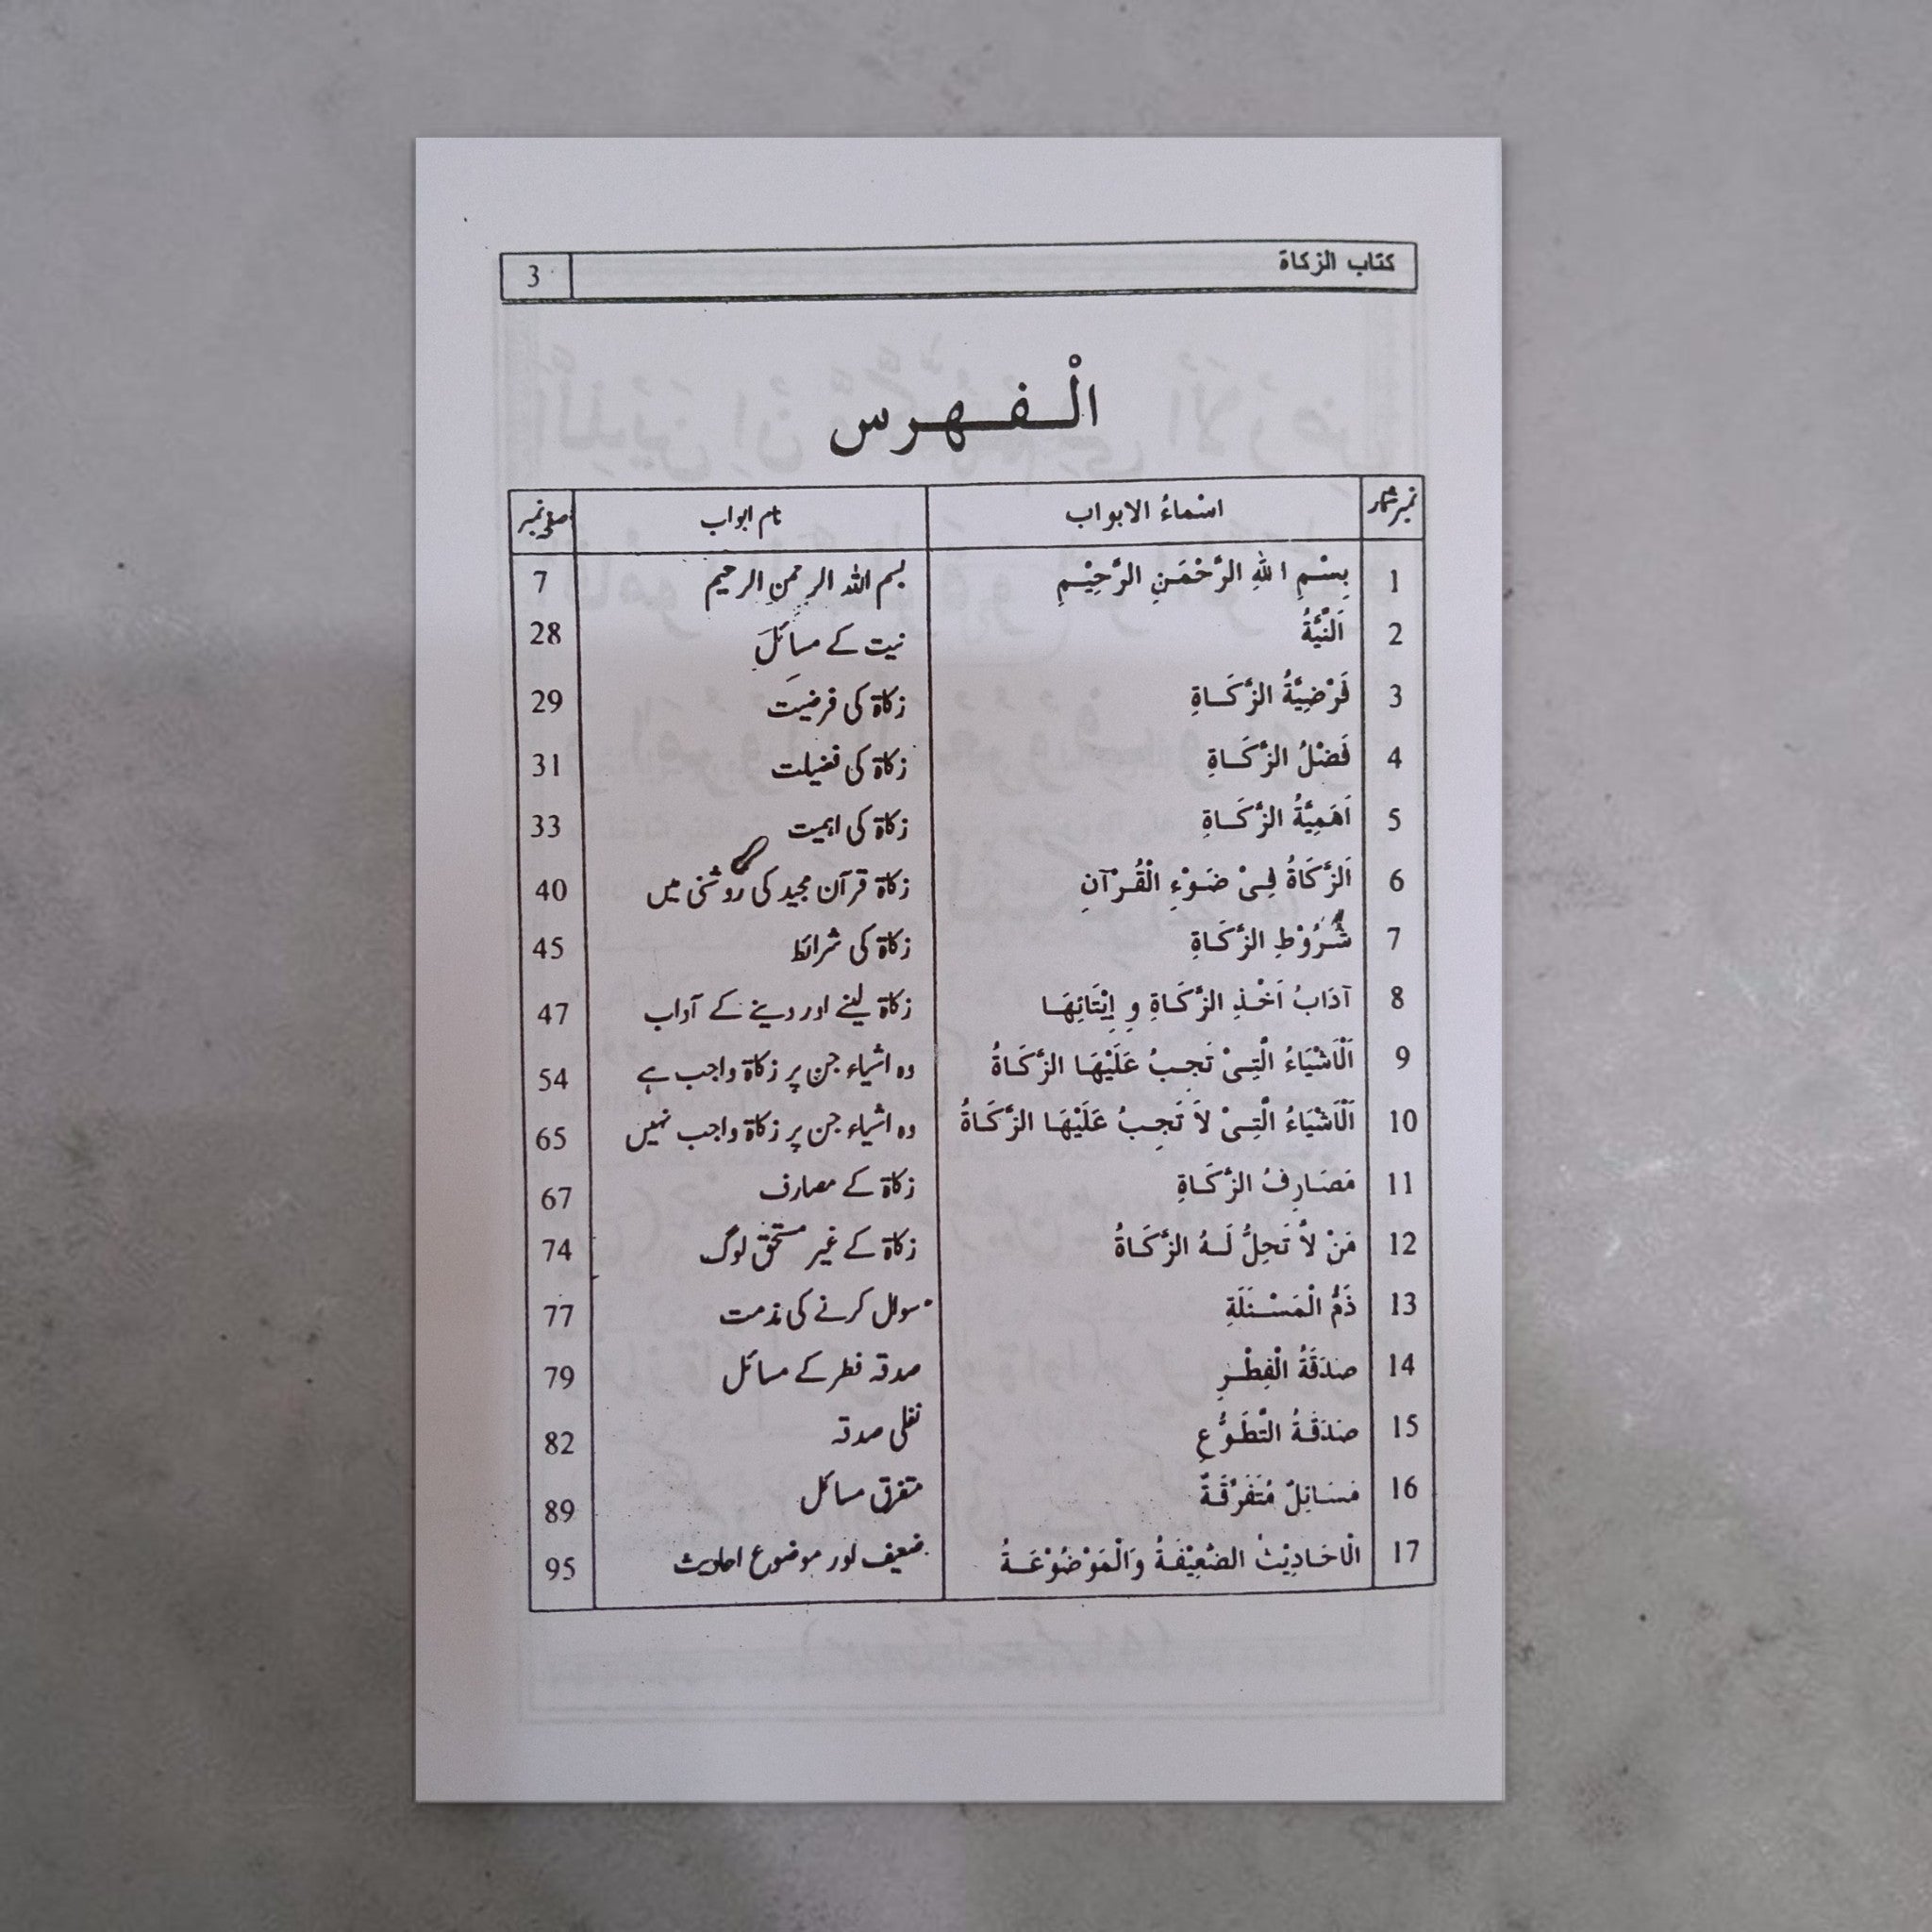 كتاب الزكاة 3
الْفهرس
نمبر شمار اسْماءُ الابواب نام ابواب صفحہ نمبر
1 بِسْمِ اللهِ الرَّحْمَنِ الرَّحِيْمِ بسم اللہ الرحمن الرحیم 7
2 اَلنِّيَّةُ نیت کے مسائل 28
3 فَرْضِيَّةُ الزَّكَاةِ زکاة کی فرضیت 29
4 فَضْلُ الزَّكَاةِ زکاة کی فضیلت 31
5 اَهَمِيَّةُ الزَّكَاةِ زکاة کی اہمیت 33
6 اَلزَّكَاةُ فِىْ ضَوْءِ الْقُرْآنِ زکاة قرآن مجید کی روشنی میں 40
7 شُرُوْطِ الزَّكَاةِ زکاة کی شرائط 45
8 آدَابُ اَخْذِ الزَّكَاةِ وِ اِيْتَائِهَا زکاة لینے اور دینے کے آداب 47
9 اَلْاَشْيَاءُ الَّتِىْ تَجِبُ عَلَيْهَا الزَّكَاةُ وہ اشیاء جن پر زکاة واجب ہے 54
10 اَلْاَشْيَاءُ الَّتِىْ لاَ تَجِبُ عَلَيْهَا الزَّكَاةُ وہ اشیاء جن پر زکاة واجب نہیں 65
11 مَصَارِفُ الزَّكَاةِ زکاة کے مصارف 67
12 مَنْ لاَّ تَحِلُّ لَهُ الزَّكَاةُ زکاة کے غیر مستحق لوگ 74
13 ذَمُّ الْمَسْئَلَةِ سوال کرنے کی مذمت 77
14 صَدَقَةُ الْفِطْرِ صدقہ فطر کے مسائل 79
15 صَدَقَةُ التَّطَوُّعِ نفلی صدقہ 82
16 مَسَائِلُ مُتَفَرِّقَةٌ متفرق مسائل 89
17 الْاَحَادِيْثُ الضَّعِيْفَةُ وَالْمَوْضُوْعَةُ ضعیف اور موضوع احادیث 95